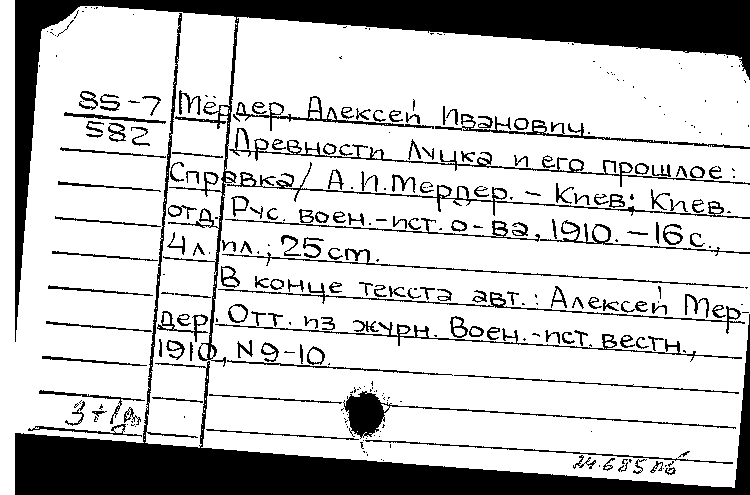 85-7 Мёрдер, Алексей Иванович.
582 Древности Луцка и его прошлое:
Справка/ А.И.Мердер. – Киев; Киев.
отд. Рус. воен.-ист. о-ва, 1910. – 16 с.,
4 л. ил.; 25 cm.
В конце текста авт.: Алексей Мер-
дер. Отт. из журн. Воен.-ист. вестн.,
1910, N 9-10.
3+1
24.685